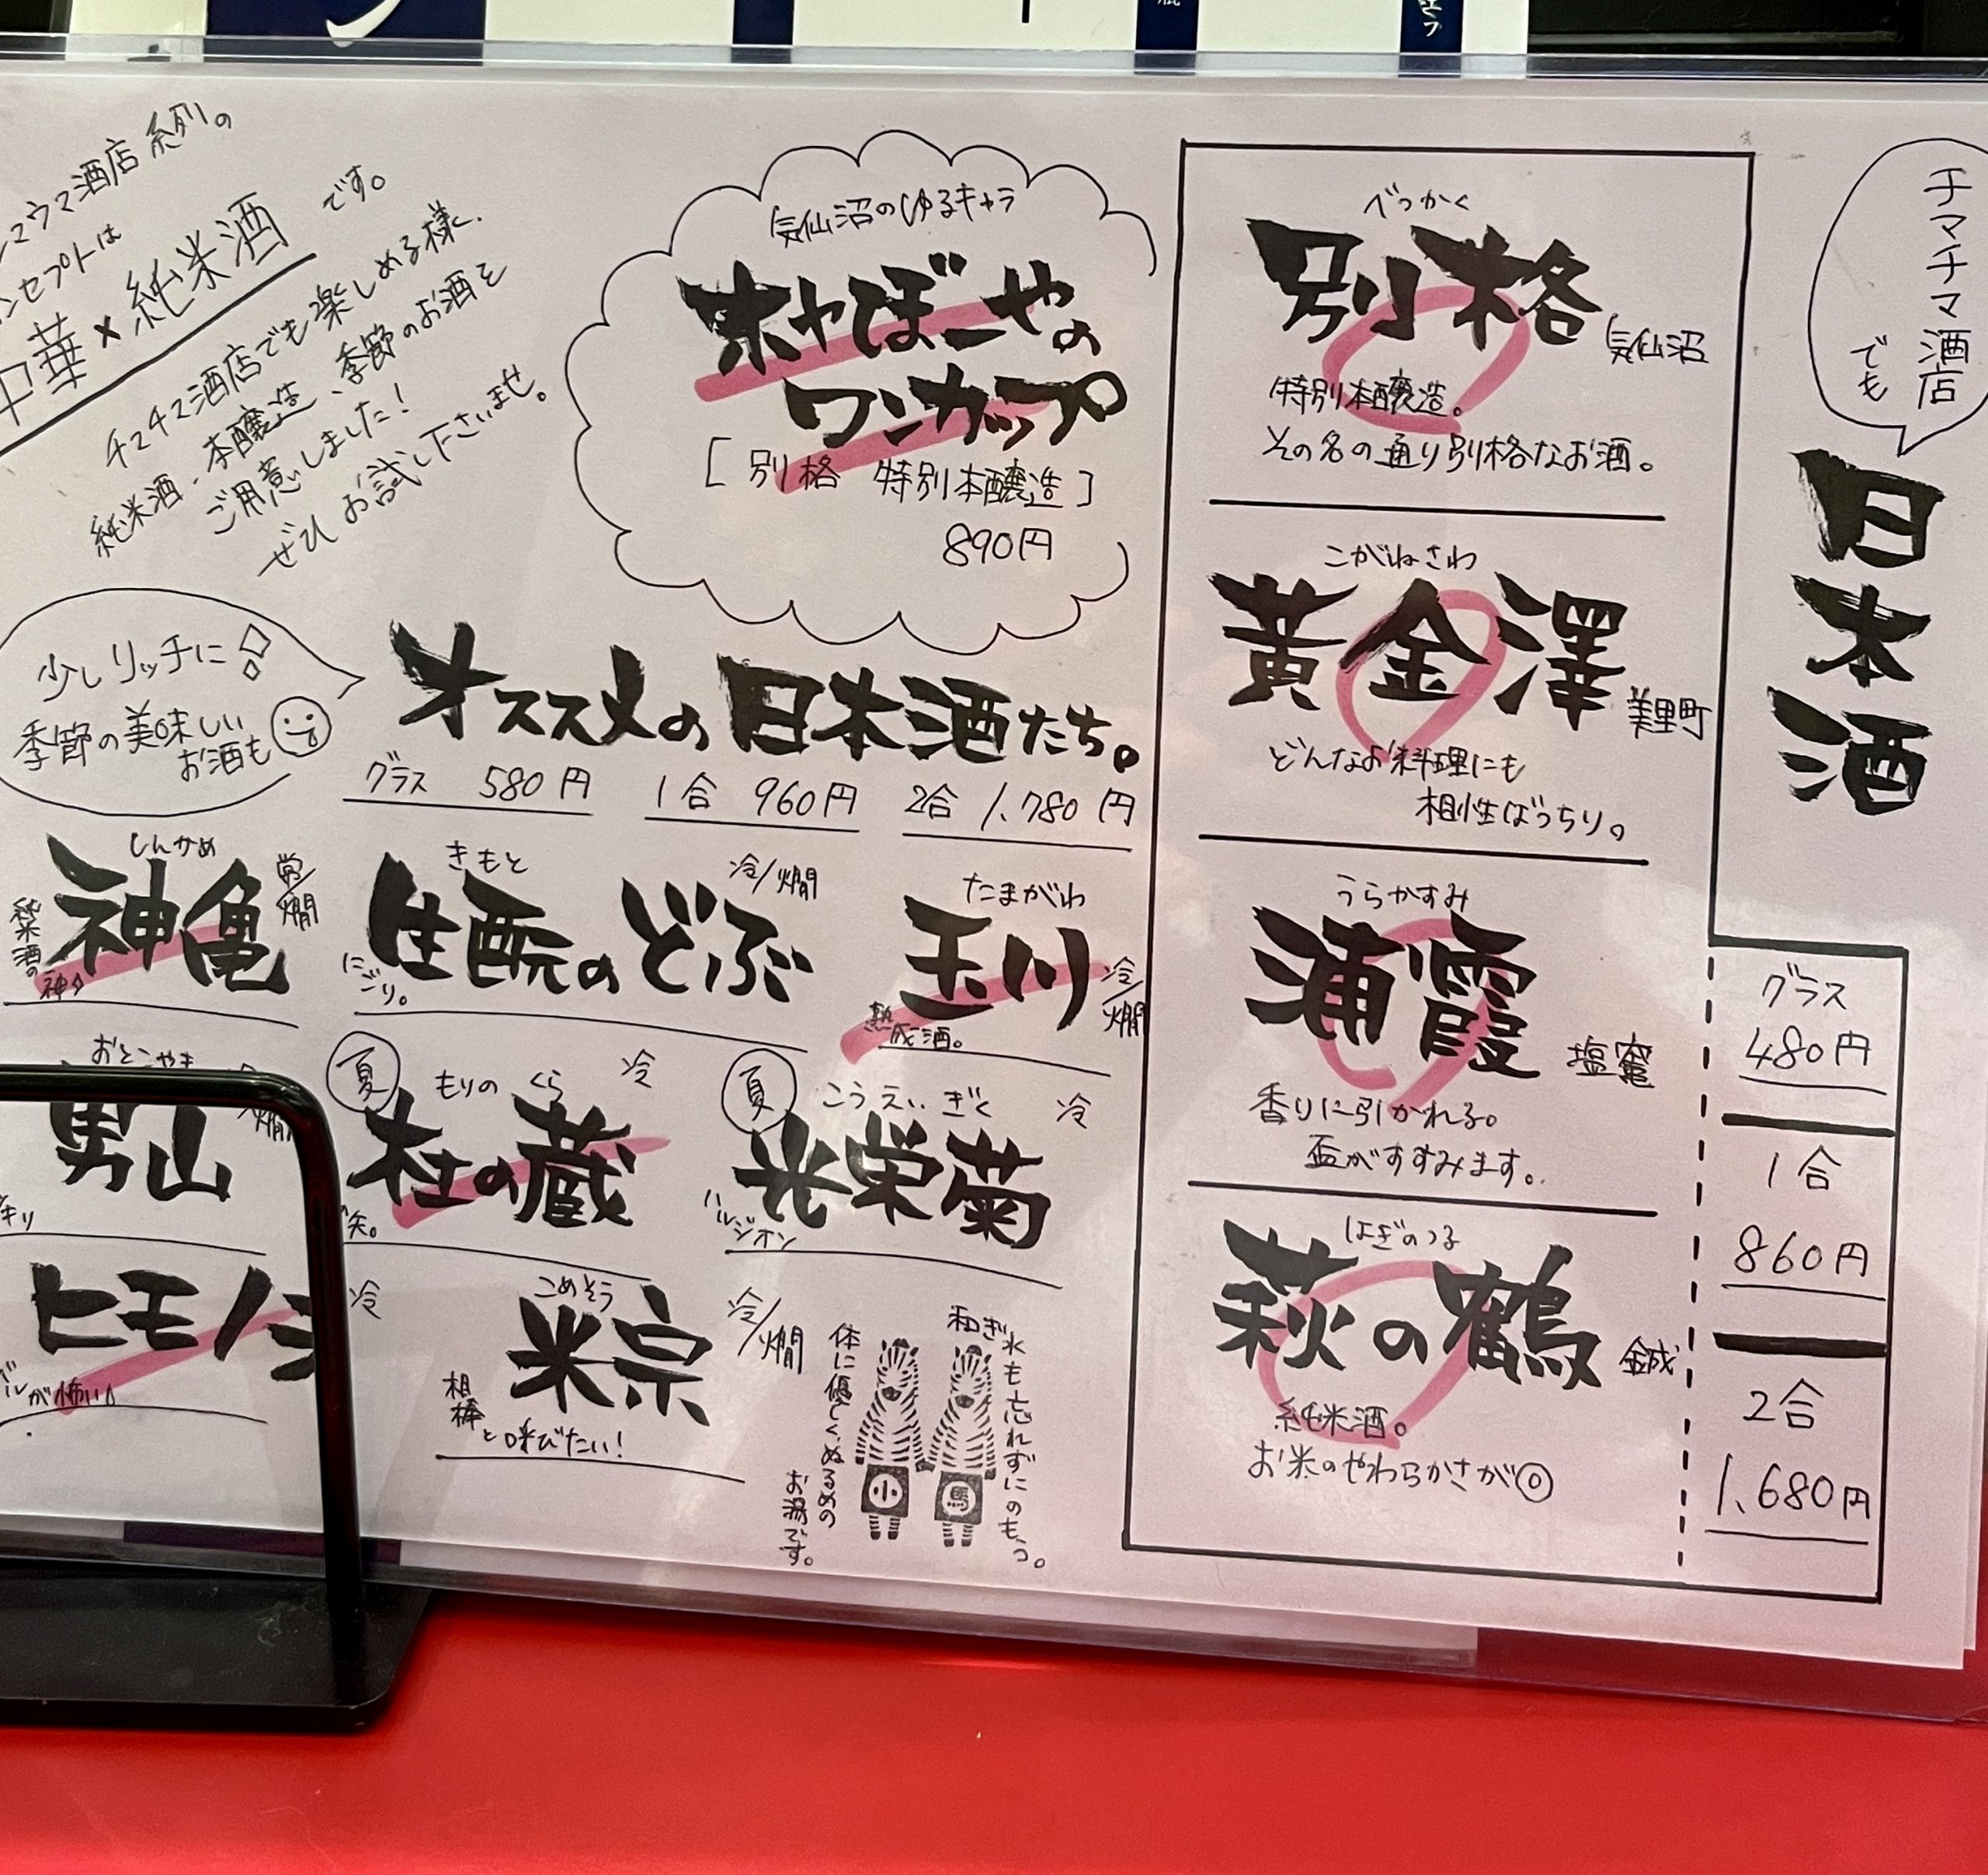 チマチマ酒店
でも
日本酒
べっかく
別格
気仙沼
特別本醸造。
その名の通り別格なお酒。
こがねさわ
黄金澤
美里町
どんなお料理にも
相性ばっちり。
うらかすみ
浦霞
塩竈
香りに引かれる。
盃がすすみます。
はぎのつる
萩の鶴
純米酒。
お米のやわらかさが◎
グラス
480円
1合
860円
2合
1,680円
気仙沼のゆるキャラ
ホヤぼーやの
ワンカップ
[別格 特別本醸造]
890円
マウマ酒店系列の
ンセプトは
中華×純米酒 です。
チマチマ酒店でも楽しめる様に
純米酒、本醸造は、季節のお酒を
ご用意しました!
ぜひお試し下さいませ。
少しリッチに!
季節の美味しい
お酒も
オススメの日本酒たち。
グラス 580円
1合 960円
2合 1,780円
たまがわ
玉川
冷/燗
熟成酒。
きもと
生酛のどぶ
冷/燗
にごり。
しんかめ
神亀
常/燗
純米酒の
神
夏
こうえいぎく
光栄菊
冷
ハルジオン
夏
もりのくら
杜の蔵
冷
おとこやま
男山
燗
キリ
こめそう
米宗
冷/燗
相棒と呼びたい!
ヒモノ
冷
が怖い
和ぎ水も忘れずにのもっ。
体に優しく、ぬるめの
お湯です。
小
馬